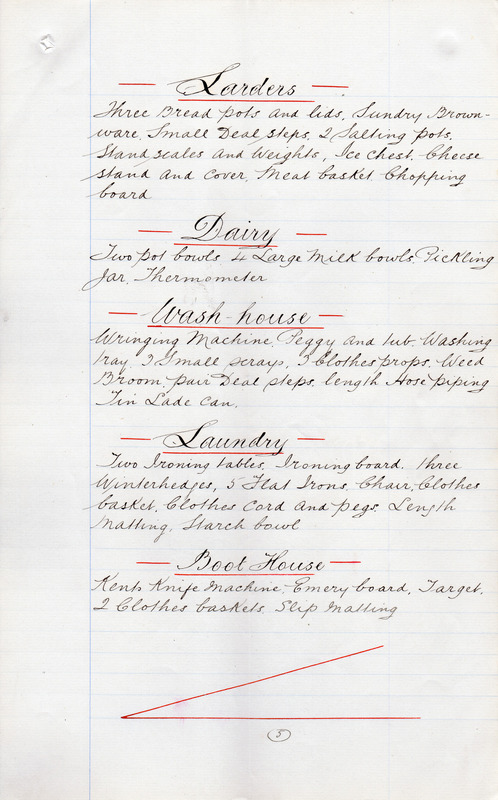 Larders
Three Bread pots and lids, Sundry Brown-
ware, Small Deal steps, 2 Salting pots.
Stand scales and Weights, Ice chest. Cheese
stand and cover, Meat basket Chopping
board
Dairy
Two pot bowls 4 Large Milk bowls. Pickling
Jar, Thermometer
Wash-house
Wringing Machine, Peggy and tub. Washing
tray. 3 Small scrays, 3 Clothes props. Weed
Broom, pair Deal steps. length Hose piping
Tin Lade can.
Laundry
Two Ironing tables, Ironing board. Three
Winterhedges, 5 Flat Irons, Chair, Clothes
basket, Clothes Cord and pegs. Length
Matting, Starch bowl
Boot House
Kents Knife Machine, Emery board, Target.
2 Clothes baskets, Slip Matting
5